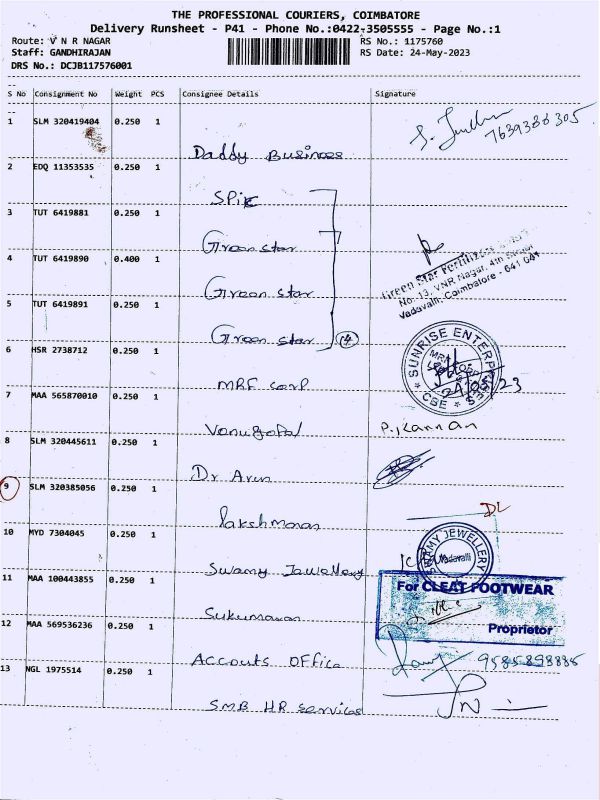 THE PROFESSIONAL COURIERS, COIMBATORE
Delivery Runsheet - P41 - Phone No.:0422-3505555 - Page No.:1
Route: V N R NAGAR
Staff: GANDHIRAJAN
DRS No.: DCJB117576001
RS No.: 1175760
RS Date: 24-May-2023
S No Consignment No Weight PCS Consignee Details Signature
1 SLM 320419404 0.250 1
7639386305
Daddy Business
2 EDQ 11353535 0.250 1
SPIC
3 TUT 6419881 0.250 1
Green star
4 TUT 6419890 0.400 1
Green Star Fertilizers
No. 13, VNR Nagar, 4th
Vadavalli, Coimbatore - 641 041
Green star
5 TUT 6419891 0.250 1
Green star 14
6 HSR 2738712 0.250 1
SUNRISE ENTERPRISES
CBE
MRF corp
7 MAA 565870010 0.250 1
P. Kannan
Venugopal
8 SLM 320445611 0.250 1
Dr Arun
9 SLM 320385056 0.250 1
DL
Lakshmanan
10 MYD 7304045 0.250 1
SWAMY JEWELLERY
Vadavalli
Swamy Jewellery
11 MAA 100443855 0.250 1
For CLEAT FOOTWEAR
Proprietor
Sukumaran
12 MAA 569536236 0.250 1
Accouts Office
9585898885
13 NGL 1975514 0.250 1
SMB HR services